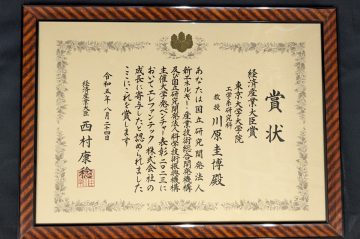 賞状
経済産業大臣賞
東京大学大学院
工学系研究科
教授 川原圭博殿
あなたは国立研究開発法人
新エネルギー・産業技術総合開発機構
及び国立研究開発法人科学技術振興機構
主催大学発ベンチャー表彰二〇二三に
おいてエレファンテック株式会社の
成長に寄与したと認められました
ここにこれを賞します
令和五年八月二十四日
経済産業大臣 西村康稔